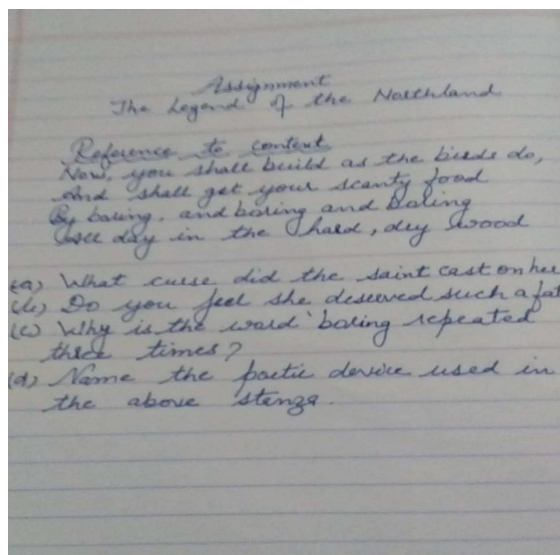 Assignment
The Legend of the Northland
Reference to context
Now, you shall build as the birds do,
And shall get your scanty food
By boring, and boring and boring
All day in the hard, dry wood
(a) What curse did the saint cast on her
(b) Do you feel she deserved such a fat
(c) Why is the word 'boring repeated
three times?
(d) Name the poetic device used in
the above stenza.